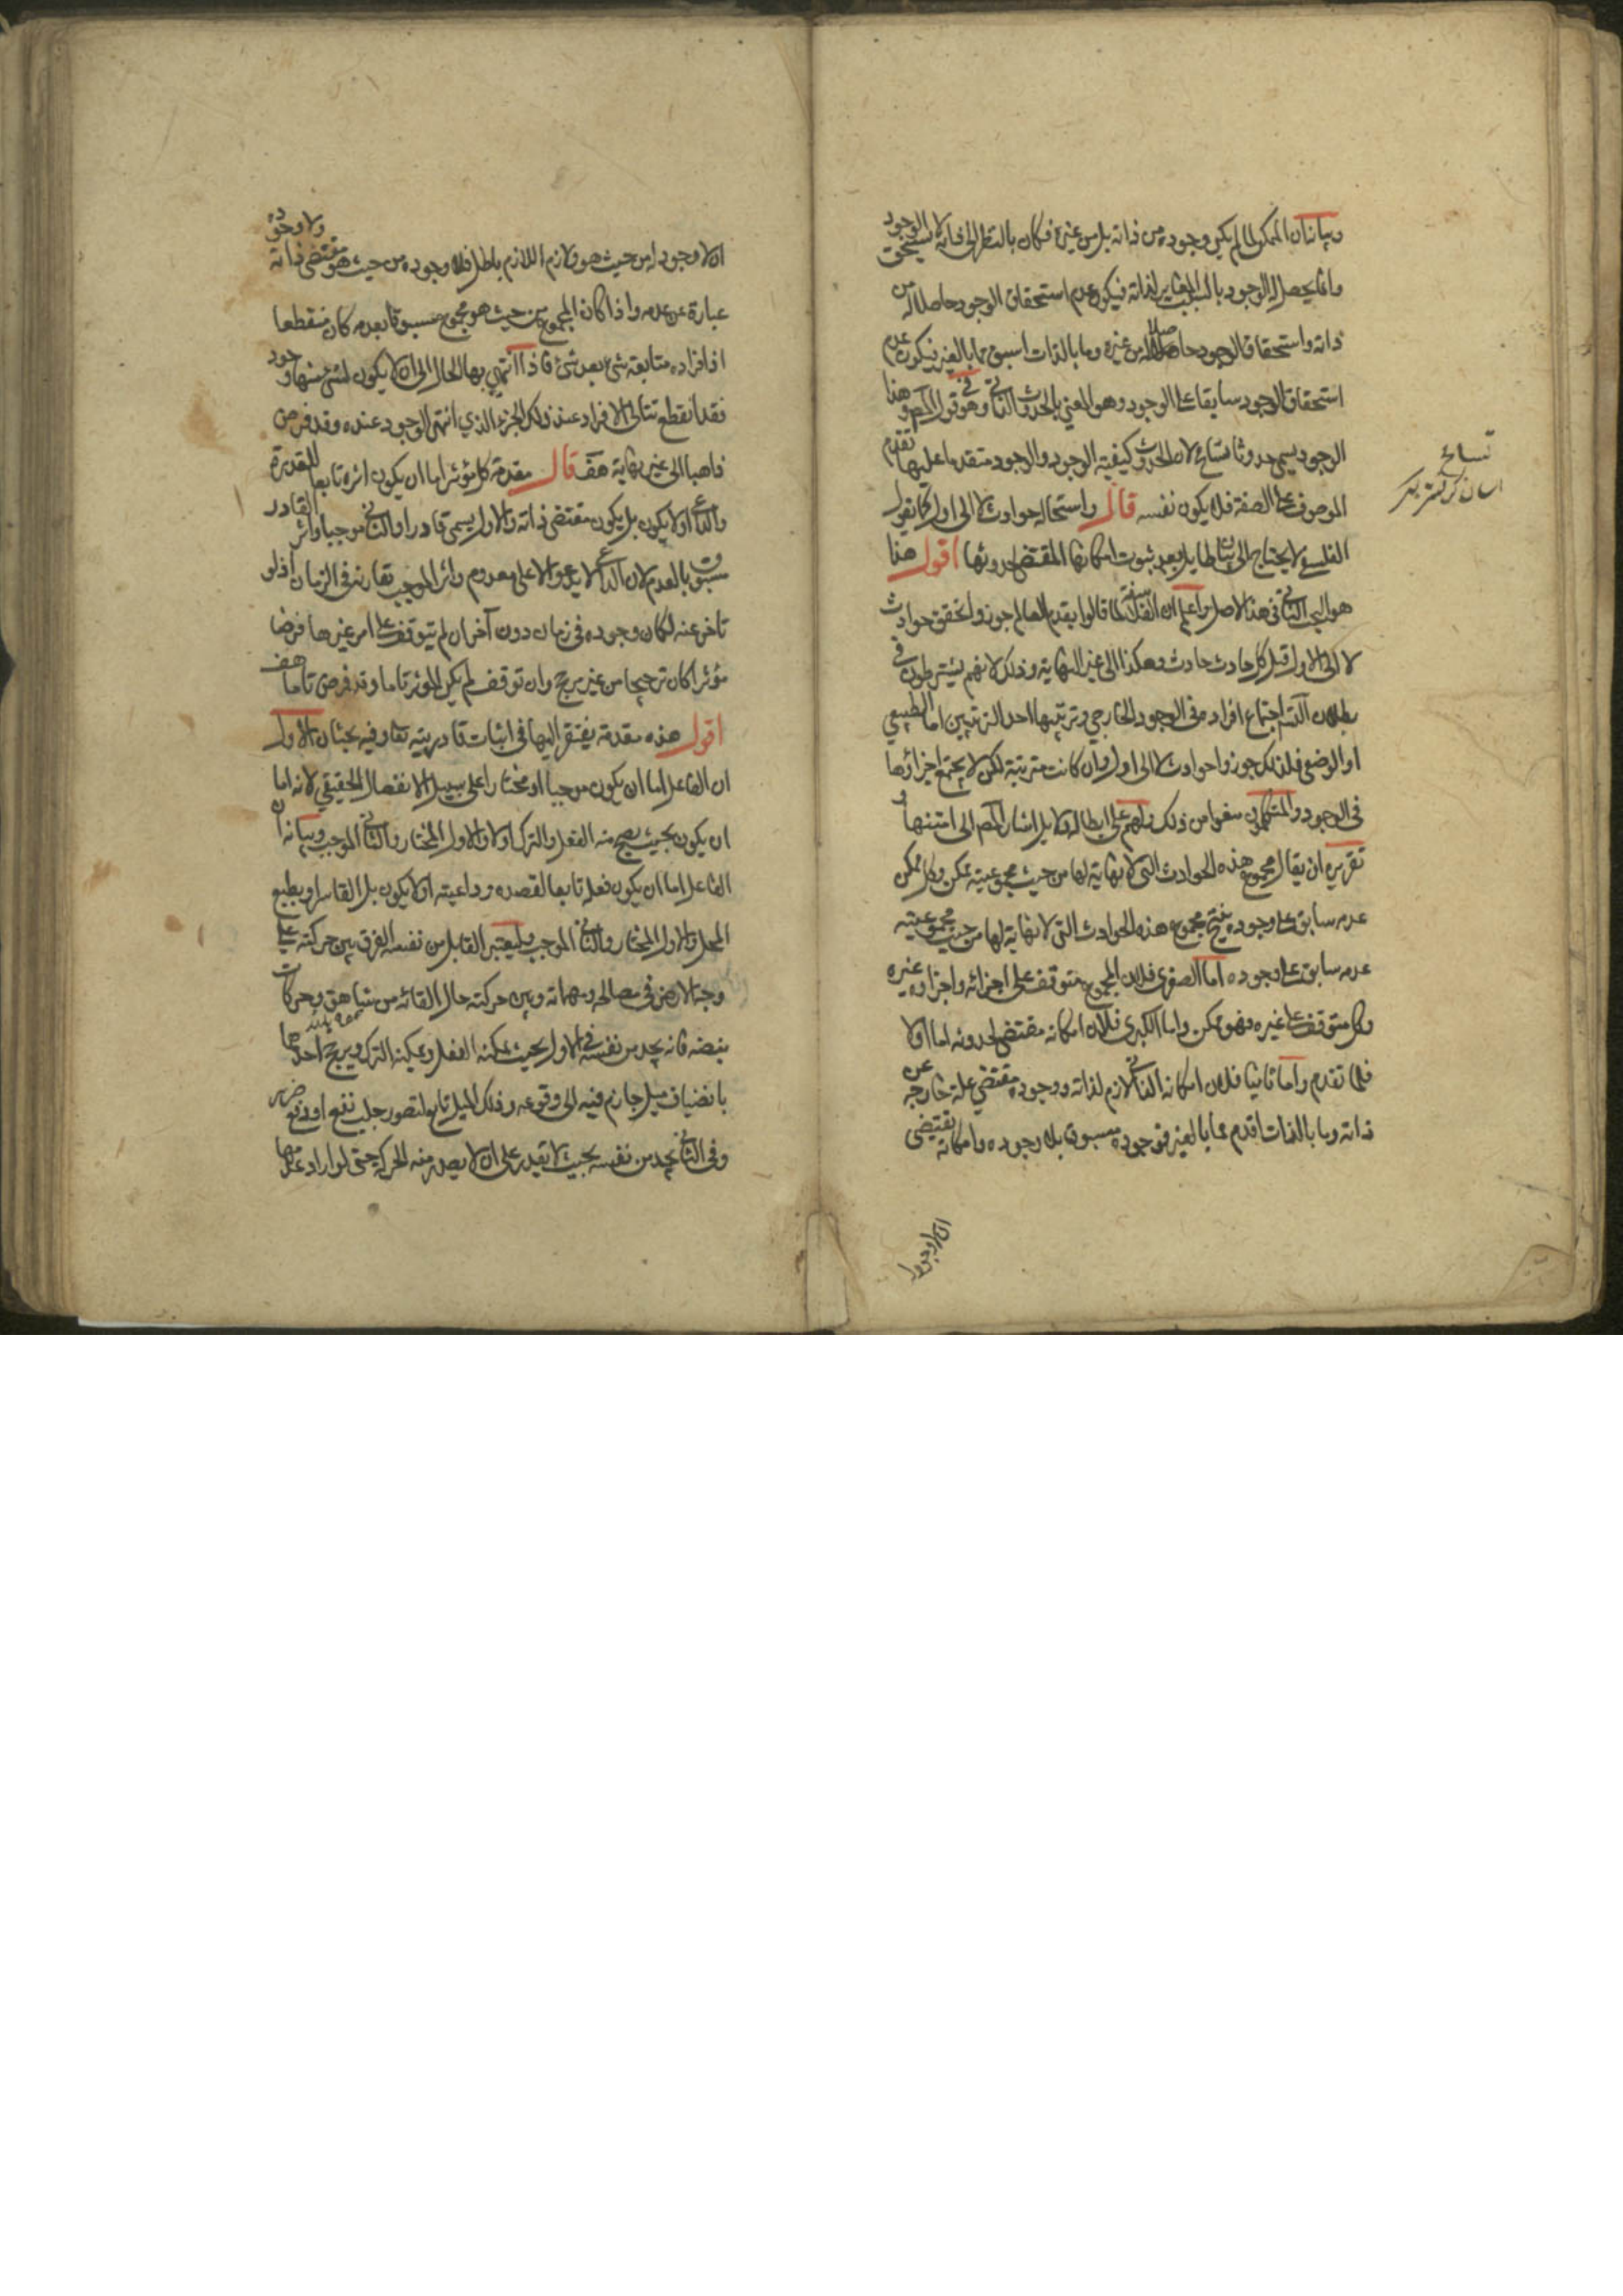 وبيانه ان الممكن لما لم يكن وجوده من ذاته بل من غيره فكان بالنظر الى ذاته لا يستحق الوجود
وانما يحصل له الوجود بالسبب المغاير لذاته فيكون عدم استحقاق الوجود حاصلا له من
ذاته واستحقاق الوجود حاصلا له من غيره وما بالذات اسبق مما بالغير فيكون عدم
استحقاق الوجود سابقا على الوجود وهو المعني بالحدوث الذاتي وفي قول المص وهذا
الوجود يسمى حدوثا تسامح لان الحدوث كيفية الوجود والوجود متقدم عليها تقدم
الموصوف على الصفة فلا يكون نفسه قال واستحالة حوادث لا الى اول كما يقول
الفلسفي لا يحتاج الى بيان طائل بعد ثبوت امكانها المقتضي لحدوثها اقول هذا
هو البحث الثاني في هذا الاصل واعلم ان الفلاسفة لما قالوا بقدم العالم جوزوا تحقق حوادث
لا الى الاول قبل كل حادث حادث وهكذا الى غير النهاية وذلك لانهم يشترطون في
بطلان التسلسل اجتماع افراده في الوجود الخارجي وترتبها احد الترتيبين اما الطبيعي
او الوضعي فلذلك جوزوا حوادث لا الى اول وان كانت مترتبة لكن لا يجتمع اجزاؤها
في الوجود والمتكلمون منعوا من ذلك ولهم على ابطاله دلايل اشار المص الى امتنها و
تقريره ان يقال مجموع هذه الحوادث التي لا نهاية لها من حيث مجموعيته ممكن وكل ممكن
عدمه سابق على وجوده ينتج مجموع هذه الحوادث التي لا نهاية لها من حيث مجموعيته
عدمه سابق على وجوده اما الصغرى فلان المجموع متوقف على اجزائه واجزاؤه غيره
وكل متوقف على غيره فهو ممكن واما الكبرى فلان امكانه مقتضي لحدوثه اما اولا
فلما تقدم واما ثانيا فلان امكانه الذاتي لازم لذاته ووجوده مقتضي علة خارجة عن
ذاته وما بالذات اقدم مما بالغير فوجوده مسبوق بلا وجوده وامكانه يقتضي
ان لا وجود
تسامح
ان لا وجود له من حيث هو ولازم اللازم باطل فلا وجوده من حيث هو مقتضى ذاته ولا وجوده
عبارة عن عدمه واذا كان المجموع من حيث هو مجموع مسبوقا بعدمه كان منقطعا
اذ افراده متتابعة شئ بعد شئ فاذا انتهى بها الحال الى ان لا يكون لشئ منها وجود
فقد انقطع تتالي الافراد عند ذلك الجزء الذي انتهى الوجود عنده وقد فرض
ذاهبا الى غير نهاية هف قال مقدمة كل مؤثر اما ان يكون اثره تابعا للقدرة
والداعي او لا يكون بل يكون مقتضى ذاته والاول يسمى قادرا والثاني موجبا واثر القادر
مسبوق بالعدم لان الداعي لا يدعو الا على معدوم واثر الموجب تقارنه في الزمان اذ لو
تاخر عنه لكان وجوده في زمان دون آخر ان لم يتوقف على امر غير ما فرض
مؤثرا كان ترجيحا من غير مرجح وان توقف لم يكن المؤثر تاما وقد فرض تاما هف
اقول هذه مقدمة يفتقر اليها في اثبات قادريته تعا وفيه بحثان الاول
ان الفاعل اما ان يكون موجبا او مختارا على سبيل الانفصال الحقيقي لانه اما
ان يكون بحيث يصح منه الفعل والترك او لا والاول المختار والثاني الموجب وبيانه ان
الفاعل اما ان يكون فعله تابعا لقصده وداعيته او لا يكون بل القاسر او بطبع
المحل والاول المختار والثاني الموجب وليعتبر القابل من نفسه الفرق بين حركته على
وجه الارض في مصالحه ومهماته وبين حركته حال القائه من شاهق وحركات
نبضه فانه يجد من نفسه في الاول بحيث يمكنه الفعل ويمكنه الترك ويرجح احدهما
بانضياف ميل جازم فيه الى وقوعه وذلك الميل تابع لتصور جلب نفع او دفع ضرر
وفي الثاني يجد من نفسه بحيث لا يقدر على ان لا يصدر منه الحركة حتى لو اراد عدمها